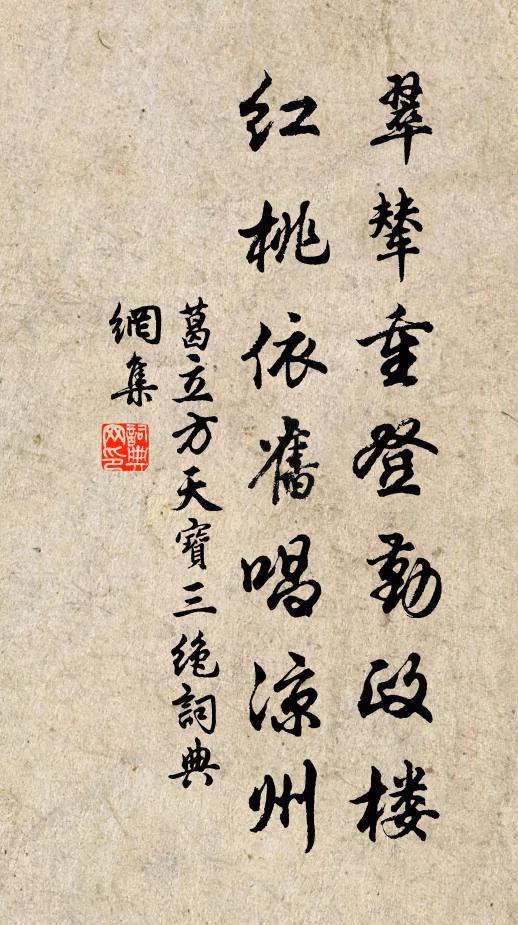 翠辇重登勤政楼
红桃依舊唱涼州
葛立方天寶三绝詞典
網集
詞典网印